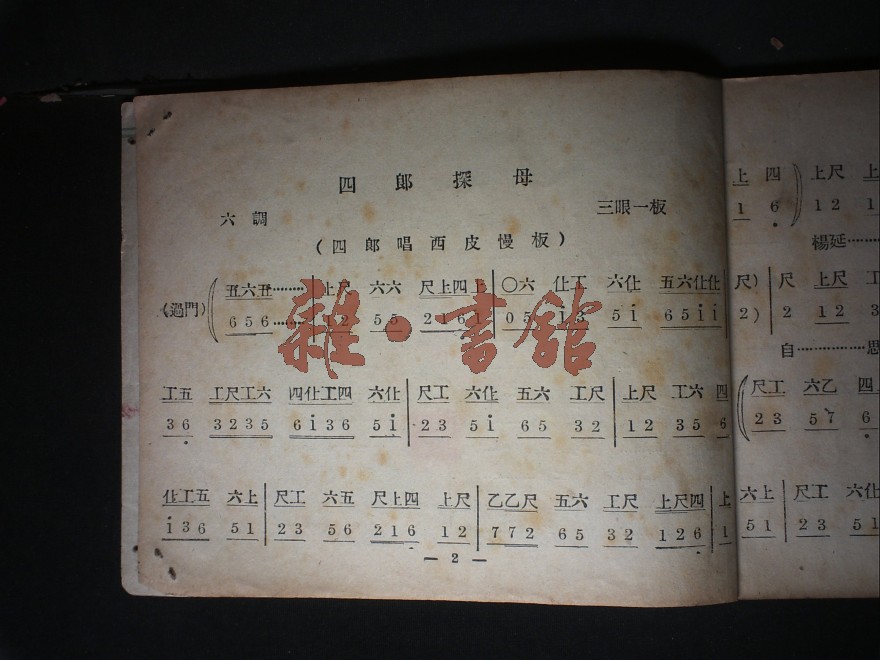 四郎探母
六調 三眼一板
(四郎唱西皮慢板)
《過門》 五六五……… 上尺 六六 尺上四上 〇六 仕工 六仕 五六仕仕
6 5 6 ……… 1 2 5 5 2 1 6 1 0 5 i 3 5 i 6 5 i i
雜·書館
工五 工尺工六 四仕工四 六仕 尺工 六仕 五六 工尺 上尺 工六 四
3 6 3 2 3 5 6 i 3 6 5 i 2 3 5 i 6 5 3 2 1 2 3 5 6
仕工五 六上 尺工 六五 尺上四 上尺 乙乙尺 五六 工尺 上尺四 上
i 3 6 5 1 2 3 5 6 2 1 6 1 2 7 7 2 6 5 3 2 1 2 6 1
— 2 —
上 四 上尺 上
1 6 1 2 1
楊延……
尺) 尺 上尺 工
2) 2 1 2 3
自………………思
尺工 六乙 四
2 3 5 7 6
六上 尺工 六仕
5 1 2 3 5 1